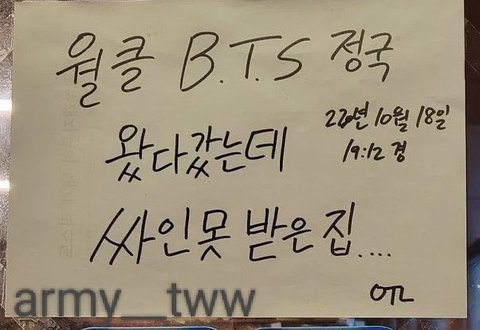 월클 B.T.S 정국
22년 10월 18일
19:12 경
왔다갔는데
싸인못 받은집....
OTL
army__tww